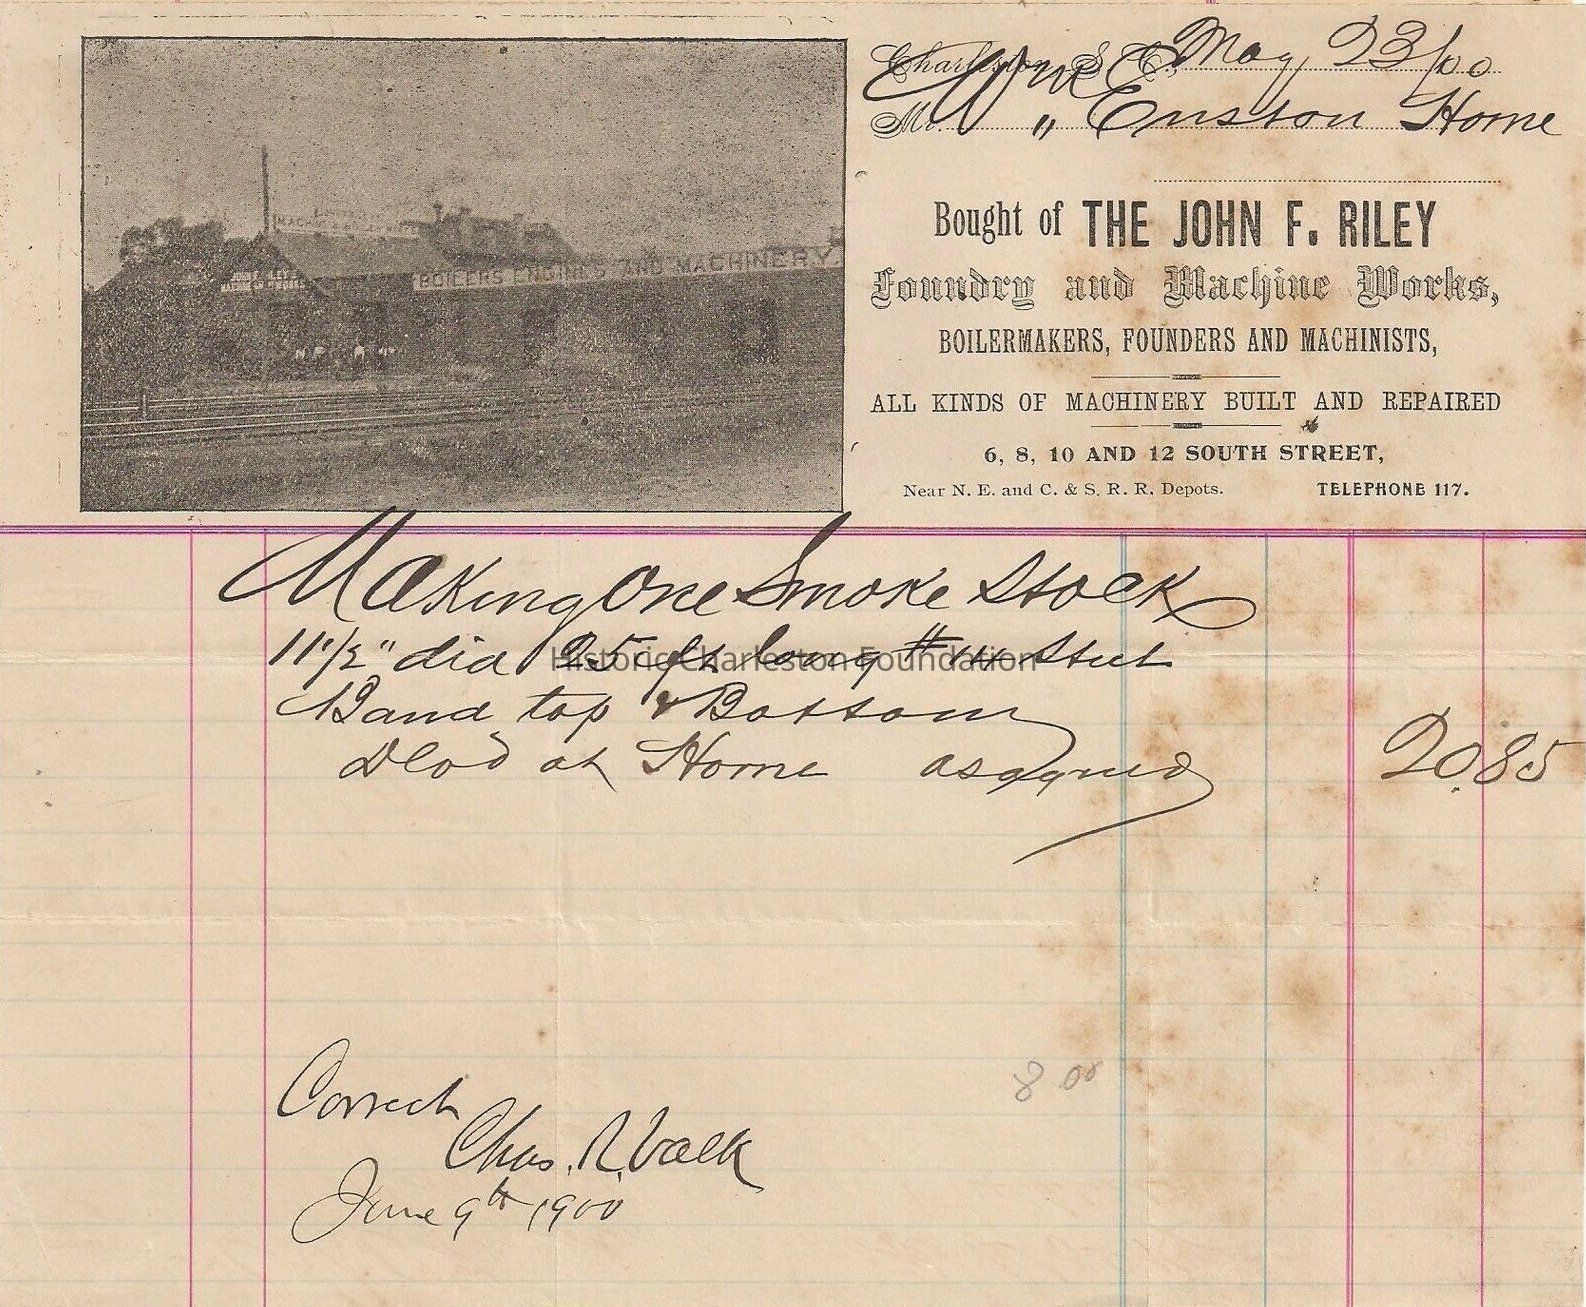 Charleston, S. C. May 23/00
Mr. Wm Enston Home
"
Bought of THE JOHN F. RILEY
Foundry and Machine Works,
BOILERMAKERS, FOUNDERS AND MACHINISTS,
ALL KINDS OF MACHINERY BUILT AND REPAIRED
6, 8, 10 AND 12 SOUTH STREET,
Near N. E. and C. & S. R. R. Depots. TELEPHONE 117.
BOILERS ENGINES AND MACHINERY
Making One Smoke Stack
11 1/2" dia 25 ft long # 14 Steel
Band top & Bottom
Dlvd at Home as agreed 20.85
Historic Charleston Foundation
8 00
Correct
Chas. R. Valk
June 9th 1900